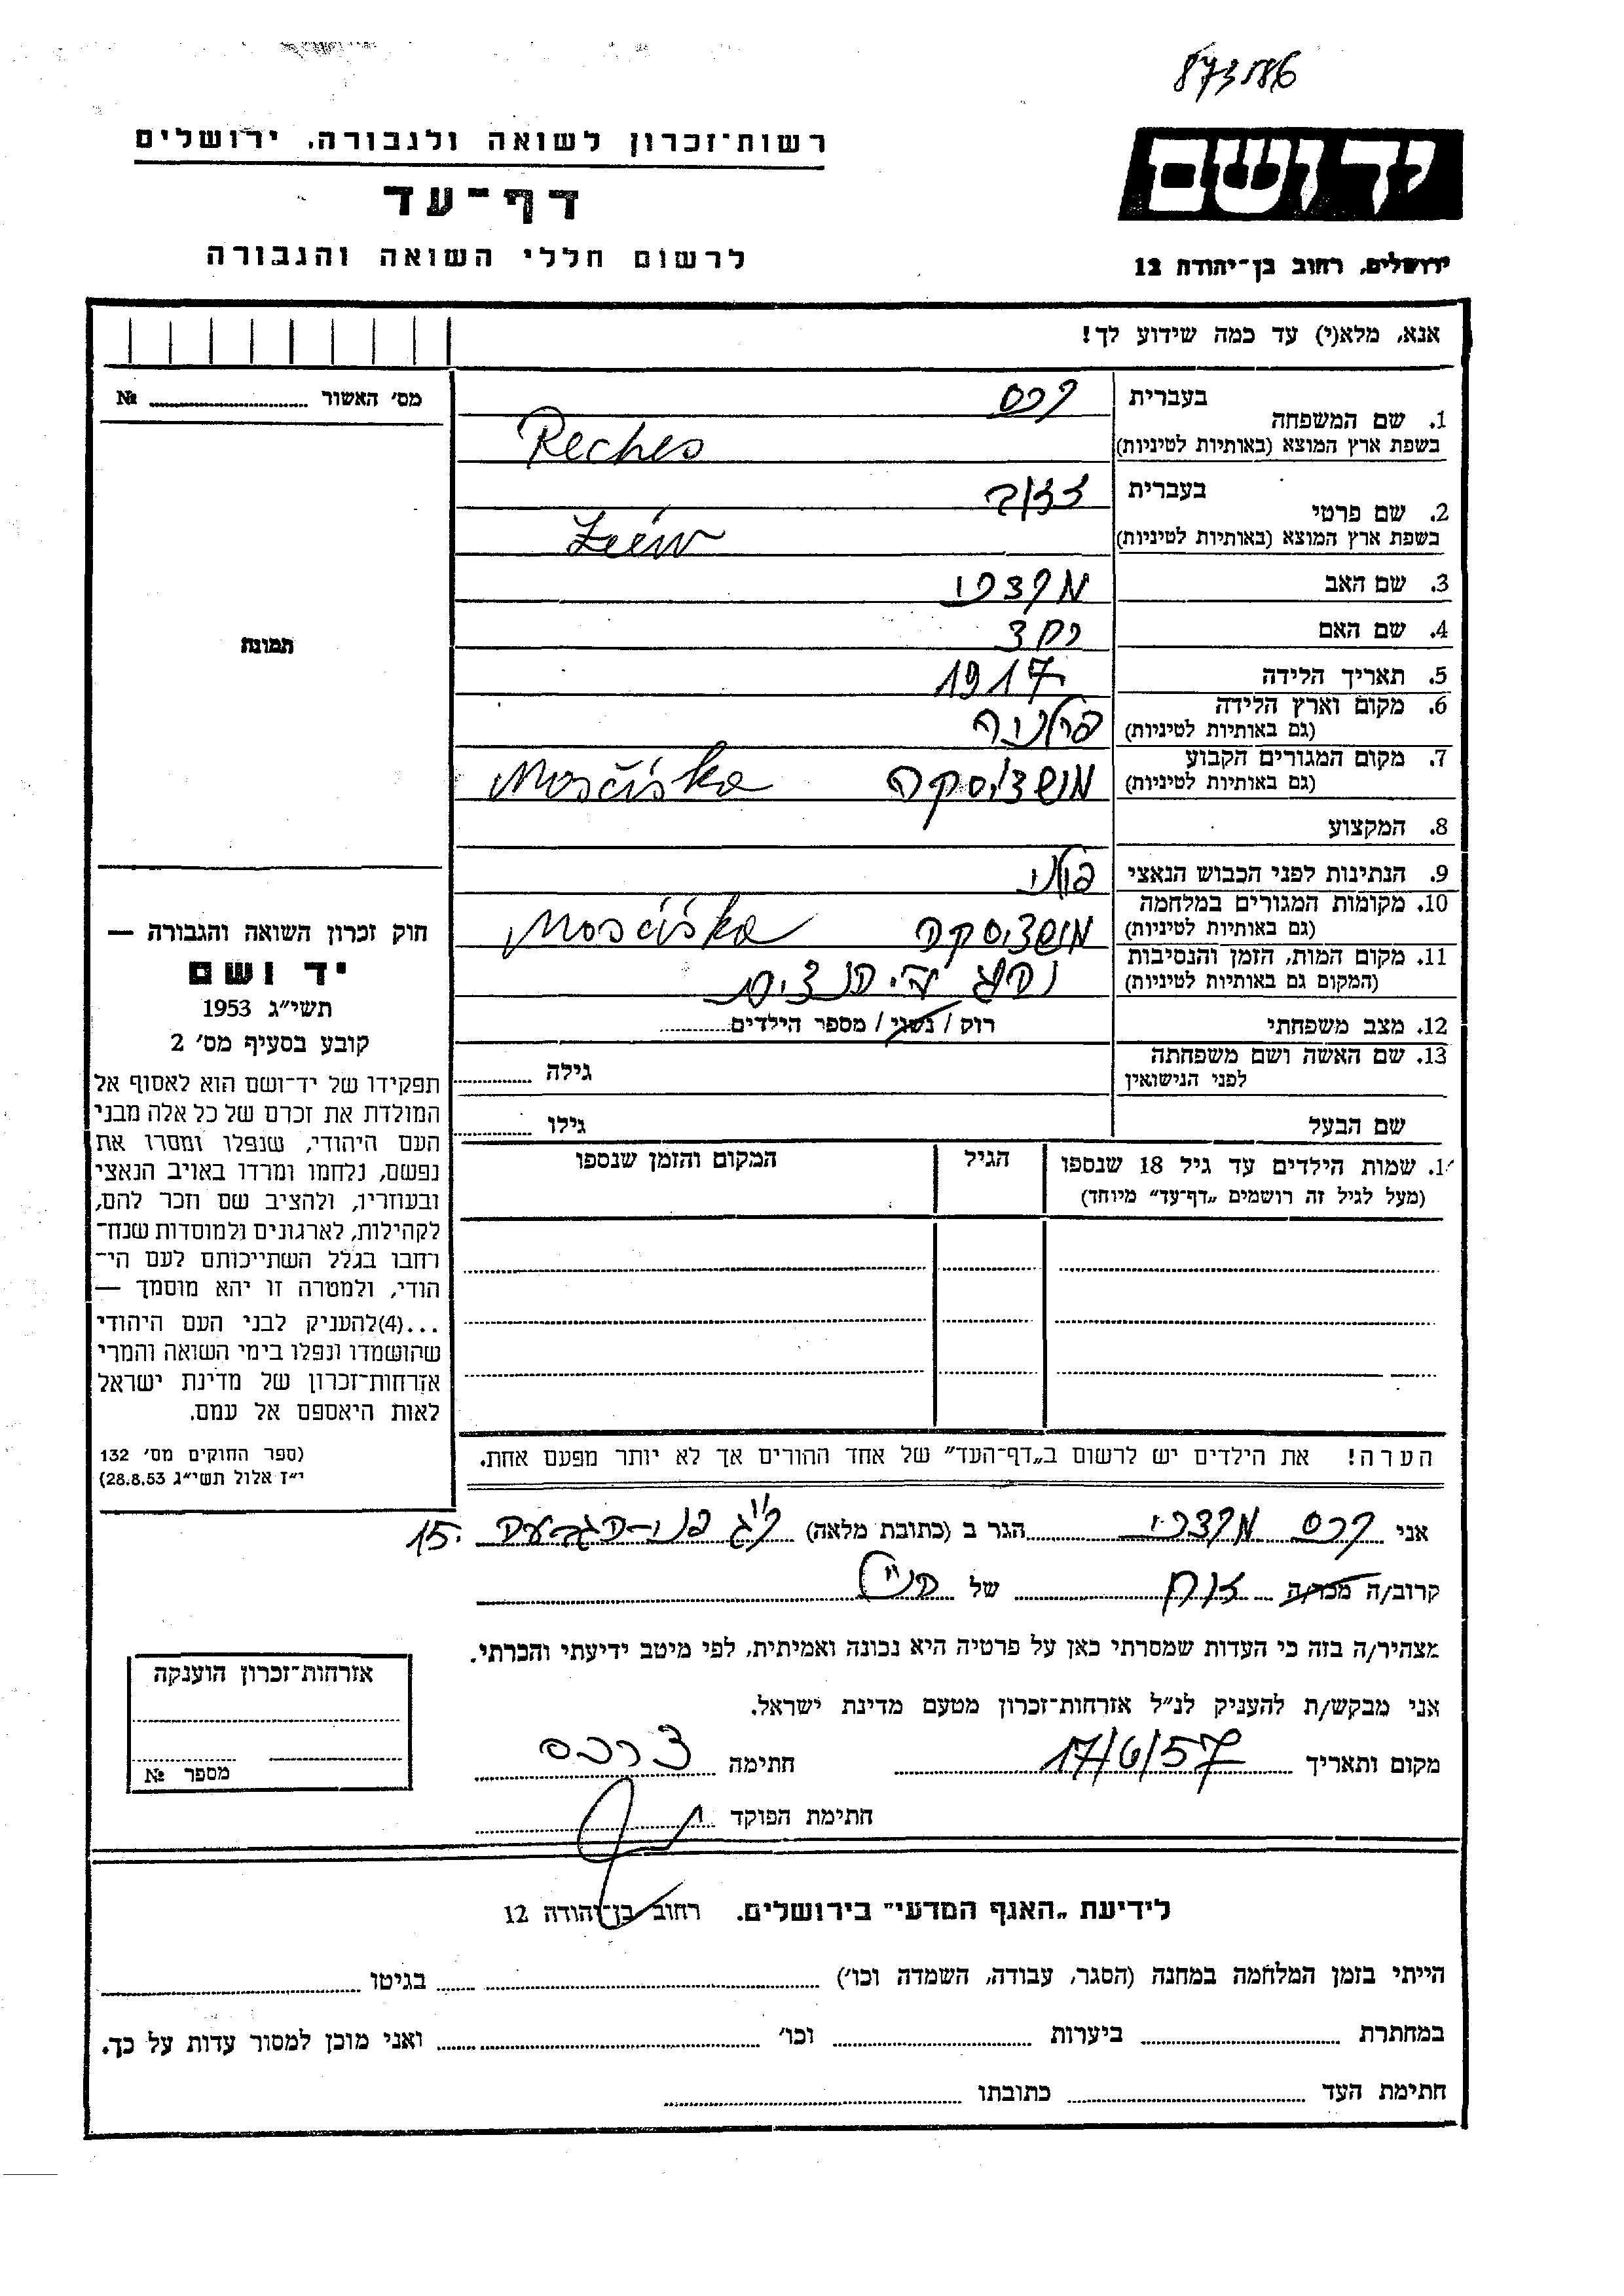 873186
ידושם
ירושלים, רחוב בן־יהודה 12
רשות־זכרון לשואה ולגבורה, ירושלים
דף־עד
לרשום חללי השואה והגבורה
אנא, מלא(י) עד כמה שידוע לך!
מס׳ האשור № 
1. שם המשפחה בעברית רכס
בשפת ארץ המוצא (באותיות לטיניות) Reches
2. שם פרטי בעברית
בשפת ארץ המוצא (באותיות לטיניות) Zeéw
3. שם האב מרדכי
4. שם האם
5. תאריך הלידה 1917
6. מקום וארץ הלידה
(גם באותיות לטיניות) פולניה
7. מקום המגורים הקבוע
(גם באותיות לטיניות) מושציסקה Mosčiska
8. המקצוע
9. הנתינות לפני הכבוש הנאצי פולני
10. מקומות המגורים במלחמה
(גם באותיות לטיניות) מושציסקה Mosčiska
11. מקום המות, הזמן והנסיבות
(המקום גם באותיות לטיניות) נהרג הנצים
12. מצב משפחתי רוק / נשוי / מספר הילדים
13. שם האשה ושם משפחתה
לפני הנישואין גילה
שם הבעל גילו
1. שמות הילדים עד גיל 18 שנספו
(מעל לגיל זה רושמים „דף־עד״ מיוחד)
הגיל
המקום והזמן שנספו
תמונה
חוק זכרון השואה והגבורה —
יד ושם
תשי״ג 1953
קובע בסעיף מס׳ 2
תפקידו של יד־ושם הוא לאסוף אל
המולדת את זכרם של כל אלה מבני
העם היהודי, שנפלו ומסרו את
נפשם, נלחמו ומרדו באויב הנאצי
ובעוזריו, ולהציב שם וזכר להם,
לקהילות, לארגונים ולמוסדות שנח־
רחבו בגלל השתייכותם לעם הי־
הודי, ולמטרה זו יהא מוסמך —
...(4)להעניק לבני העם היהודי
שהושמדו ונפלו בימי השואה והמרי
אזרחות־זכרון של מדינת ישראל
לאות היאספם אל עמם.
(ספר החוקים מס׳ 132
י״ז אלול תשי״ג 28.8.53)
הערה! את הילדים יש לרשום ב„דף־העד״ של אחד ההורים אך לא יותר מפעם אחת.
אני רכס מרדכי הגר ב (כתובת מלאה) 15.
קרוב/ה מכר/ה של
מצהיר/ה בזה כי העדות שמסרתי כאן על פרטיה היא נכונה ואמיתית, לפי מיטב ידיעתי והכרתי.
אני מבקש/ת להעניק לנ״ל אזרחות־זכרון מטעם מדינת ישראל.
מקום ותאריך 17/6/57 חתימה
חתימת הפוקד
אזרחות־זכרון הוענקה
מספר №
לידיעת „האגף המדעי״ בירושלים. רחוב בן־יהודה 12
הייתי בזמן המלחמה במחנה (הסגר, עבודה, השמדה וכו׳) בגיטו
במחתרת ביערות וכו׳ ואני מוכן למסור עדות על כך.
חתימת העד כתובתו